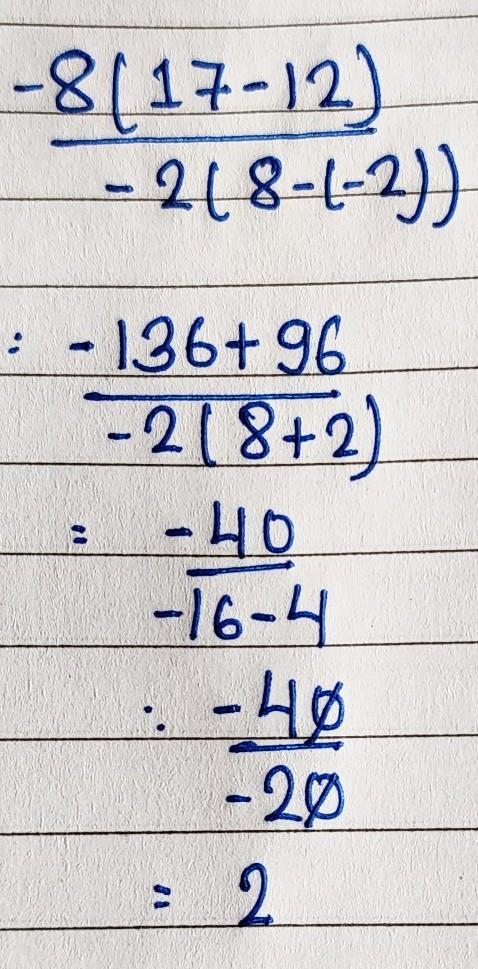 -8(17-12)
-2(8-(-2))
: -136+96
-2(8+2)
= -40
-16-4
: -40
-20
= 2